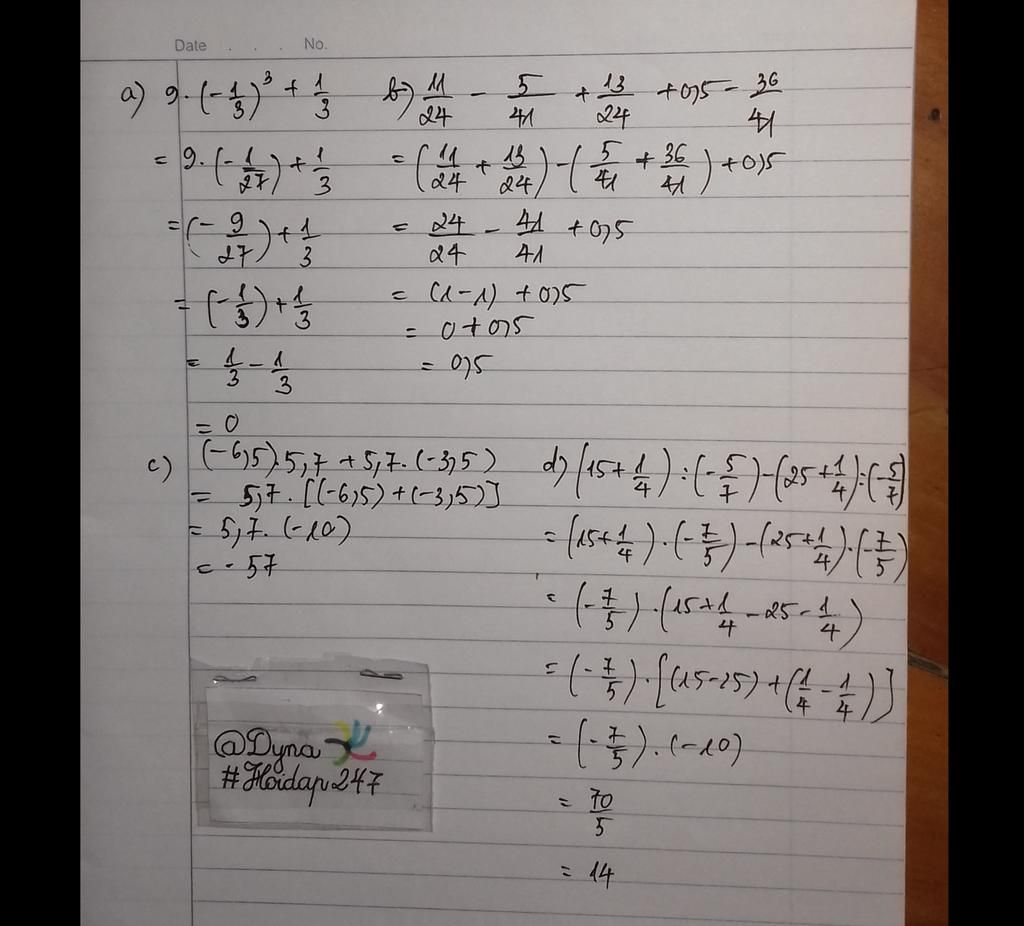 Date . . . No.
a) 9.(-1/3)^3 + 1/3
= 9.(-1/27) + 1/3
= (-9/27) + 1/3
= (-1/3) + 1/3
= 1/3 - 1/3
= 0
b) 11/24 - 5/41 + 13/24 + 0,5 - 36/41
= (11/24 + 13/24) - (5/41 + 36/41) + 0,5
= 24/24 - 41/41 + 0,5
= (1-1) + 0,5
= 0 + 0,5
= 0,5
c) (-6,5).5,7 + 5,7.(-3,5)
= 5,7.[(-6,5)+(-3,5)]
= 5,7.(-10)
= -57
d) (15+1/4):(-5/7)-(25+1/4):(-5/7)
= (15+1/4).(-7/5)-(25+1/4).(-7/5)
= (-7/5).(15+1/4-25-1/4)
= (-7/5).[(15-25)+(1/4-1/4)]
= (-7/5).(-10)
= 70/5
= 14
@Dyna
#Hoidap247